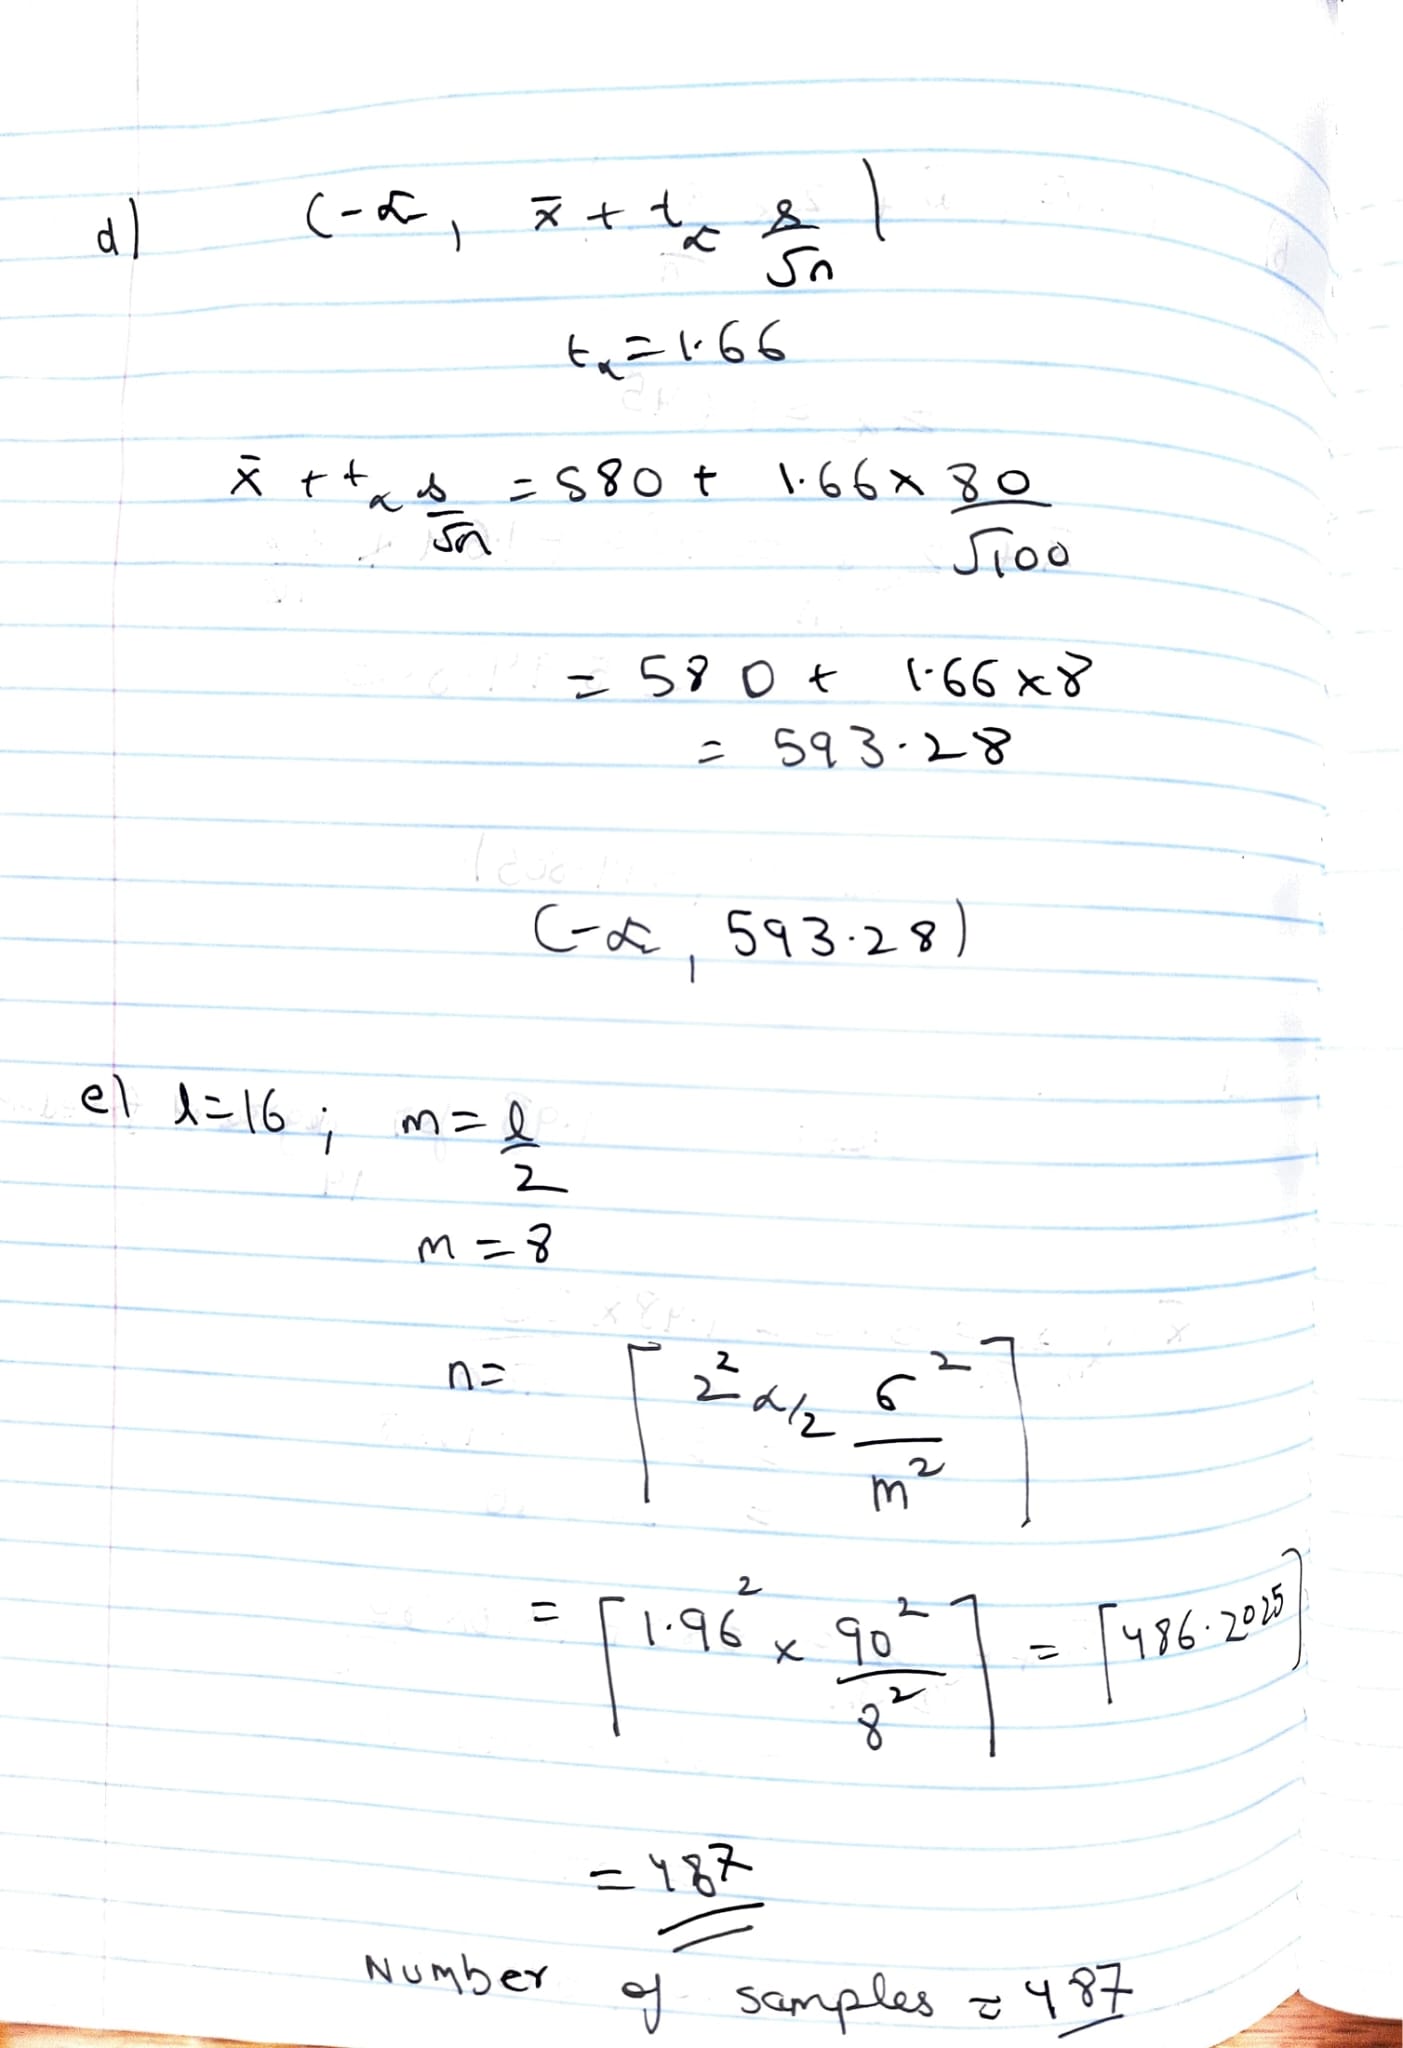 d) (-∞, x̄ + t_α s/√n)
t_α = 1.66
x̄ + t_α s/√n = 580 + 1.66 x 80/√100
= 580 + 1.66 x 8
= 593.28
(-∞, 593.28)
e) l = 16 ; m = l/2
m = 8
n = ⌈z²α/2 σ²/m²⌉
= ⌈1.96² x 90²/8²⌉ = ⌈486.2025⌉
= 487
Number of samples = 487